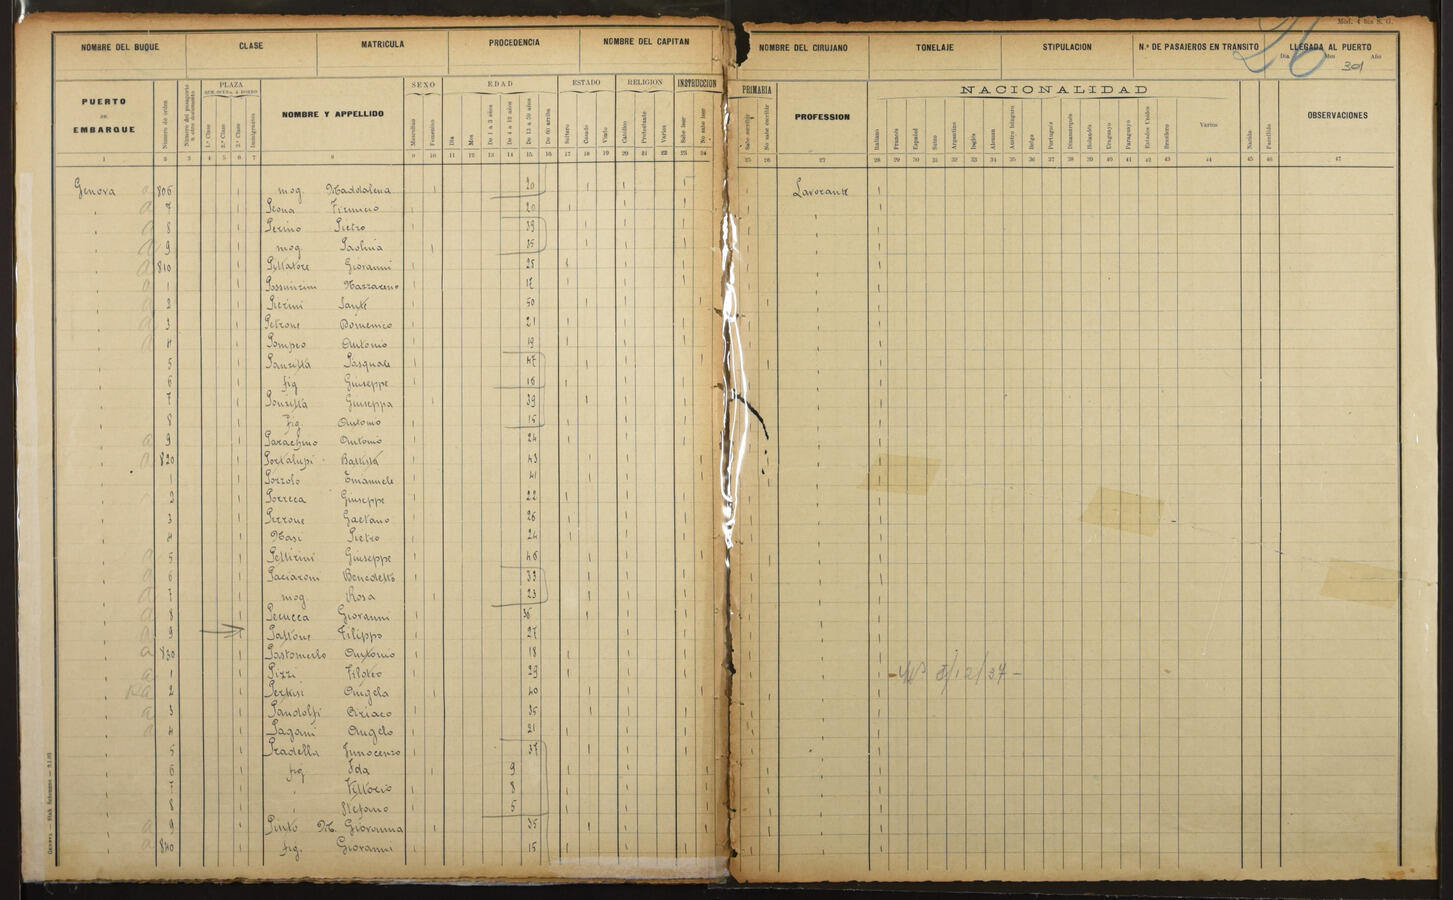 Mod. 4 bis S. G.
26
NOMBRE DEL BUQUE CLASE MATRICULA PROCEDENCIA NOMBRE DEL CAPITAN NOMBRE DEL CIRUJANO TONELAJE STIPULACION N.º DE PASAJEROS EN TRANSITO LLEGADA AL PUERTO
Dia Mes Año
301
PUERTO DE EMBARQUE Número de orden PLAZA QUE OCUPA A BORDO NOMBRE Y APPELLIDO SEXO EDAD ESTADO RELIGION INSTRUCCION PRIMARIA PROFESSION NACIONALIDAD OBSERVACIONES
1.ª Clase 2.ª Clase 3.ª Clase Inmigrantes Masculino Femenino Dia Mes De 1 á 3 años De 4 á 12 años De 13 á 59 años De 60 arriba Soltero Casado Viudo Católico Protestante Varios Sabe leer No sabe leer Sabe escribir No sabe escribir Italiano Francés Español Suizo Argentino Inglés Aleman Austro húngaro Belga Portugués Dinamarqués Holandés Uruguayo Paraguayo Estados Unidos Brasilero Varios Nacido Fallecido
1 2 3 4 5 6 7 8 9 10 11 12 13 14 15 16 17 18 19 20 21 22 23 24 25 26 27 28 29 30 31 32 33 34 35 36 37 38 39 40 41 42 43 44 45 46 47
Genova a 806 mog. Maddalena 20 Lavorante
a 7 Peona 20
a 8 Perino Pietro 39
a 9 mog. Paolina
a 810 Giovanni 25
1 Nazzareno
a 2 Pierini Sante 50
a 3 Petrone Domenico 21
a 4 Pompeo Antonio 19
5 Panzitta Pasquale 47
6 fig Giuseppe 18
7 Ponzitta Giuseppa 39
8 fig. Antonio 15
a 9 Parachino Antonio 24
a 820 Portalupi Battista 43
1 Pozzolo Emanuele 41
2 Porreca Giuseppe 22
3 Perrone Gaetano 26
4 Masi Pietro 24
a 5 Pellirini Giuseppe 46
a 6 Paciaroni Benedetto 33
a 7 mog. Rosa 23
a 8 Perucca Giovanni 36
a 9 Pallone Filippo 27
a 830 Pastomerlo Antonio 18
a 1 Pizzi Filoteo 29
a 2 Angela 40
a 3 Pandolfi Ciriaco 35
a 4 Pagani Angelo 21
5 Pradella Innocenzo 37
6 fig Ida 9
7 " Vittorio 8
8 " Stefano 5
a 9 Pinto M. Giovanna 35
a 840 fig. Giovanni 15